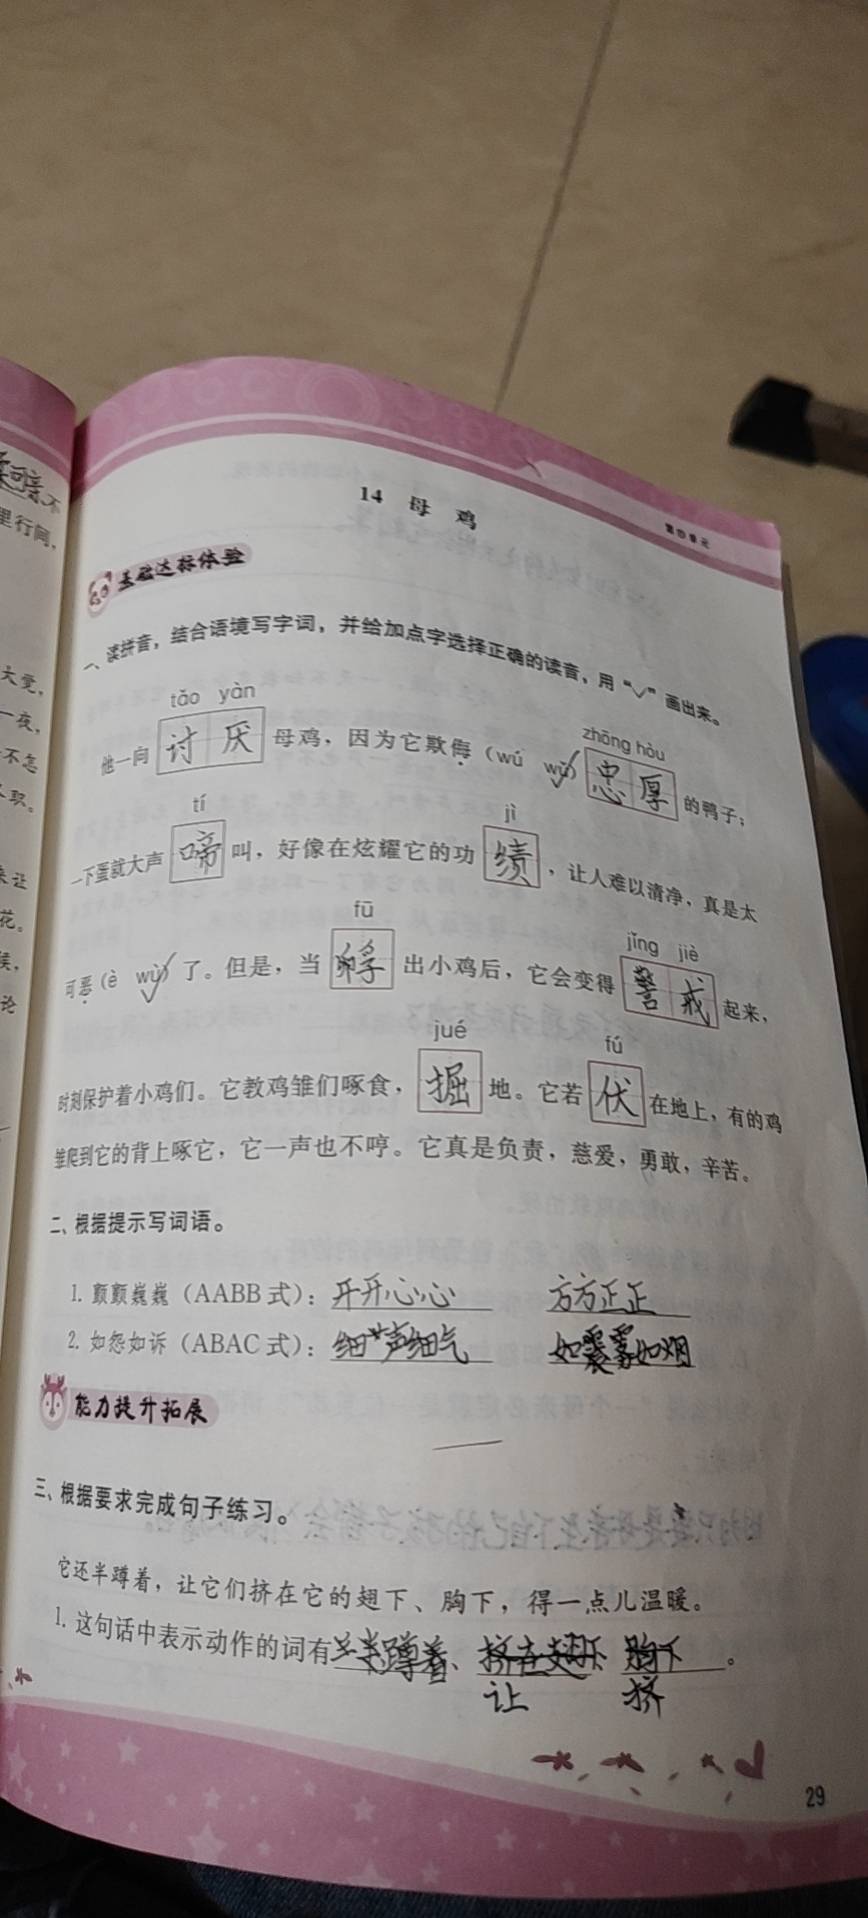 14 母鸡
第四单元
基础达标体验
一、读拼音，结合语境写字词，并给加点字选择正确的读音，用“√”画出来。
tǎo yàn
zhōng hòu
他一向讨厌母鸡，因为它欺侮（wú wǔ√）忠厚的鸭子；
tí
jì
一下蛋就大声啼叫，好像在炫耀它的功绩，让人难以清净，真是太
fū
jǐng jiè
可恶（è wù√）了。但是，当孵出小鸡后，它会变得警戒起来，
jué
fú
时刻保护着小鸡们。它教鸡雏们啄食，掘地。它若伏在地上，有的鸡
雏爬到它的背上啄它，它一声也不哼。它真是负责，慈爱，勇敢，辛苦。
二、根据提示写词语。
1. 颤颤巍巍（AABB式）：开开心心 方方正正
2. 如怨如诉（ABAC式）：细声细气 如雾如烟
能力提升拓展
三、根据要求完成句子练习。
它还半蹲着，让它们挤在它的翅下、胸下，得一点儿温暖。
1. 这句话中表示动作的词有半蹲着、挤在翅下、胸下。
让 挤
29
里行间，
大觉，
一夜，
不怎
职。
来让
花。
候，
论